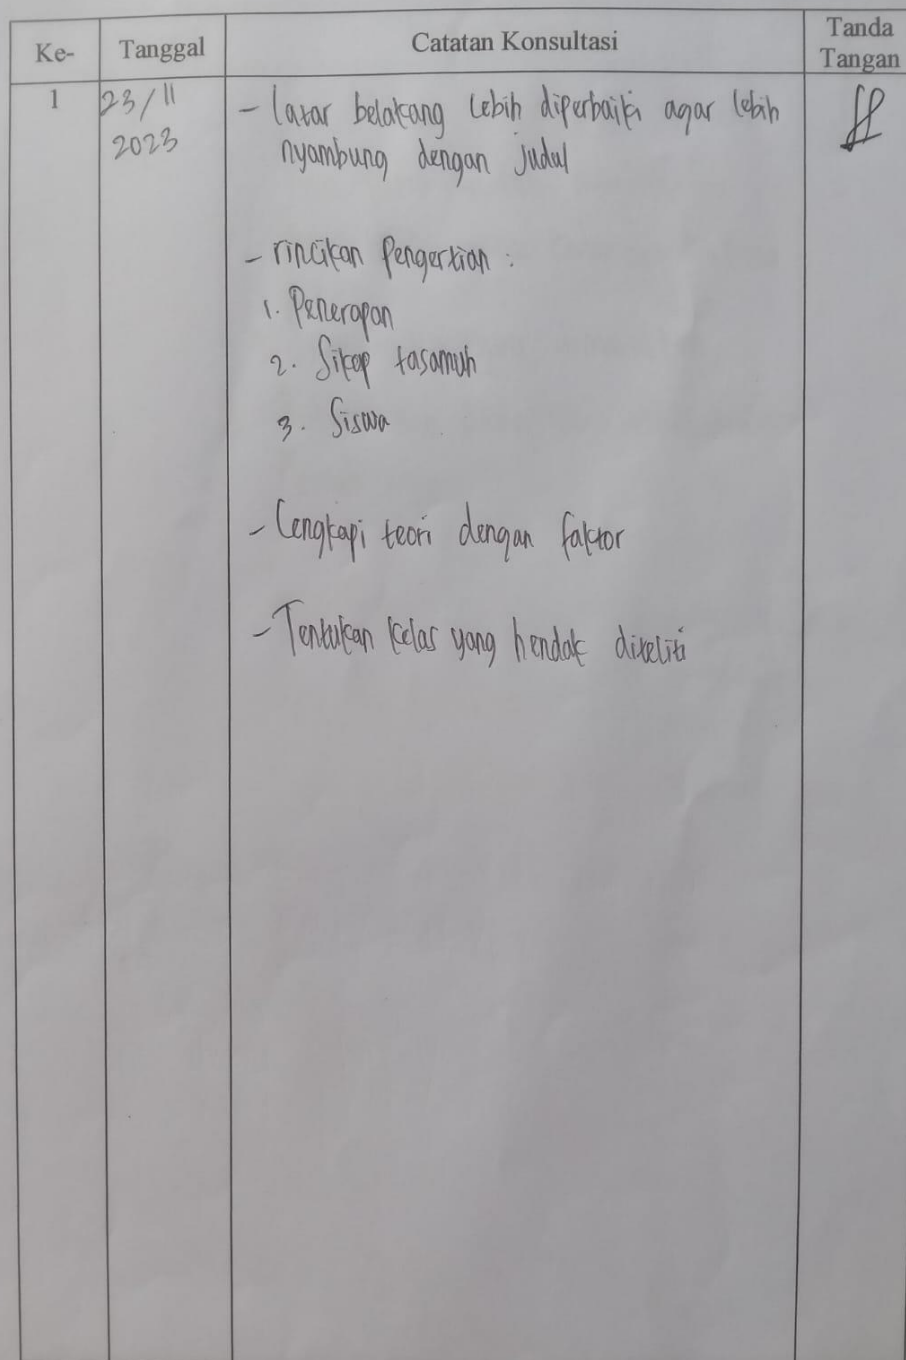 Ke- Tanggal Catatan Konsultasi Tanda
Tangan
1 23/11 - latar belakang lebih diperbaiki agar lebih
2023 nyambung dengan judul
- rincikan Pengertian :
1. Penerapan
2. Sikap tasamuh
3. Siswa
- Lengkapi teori dengan faktor
- Tentukan kelas yang hendak diteliti